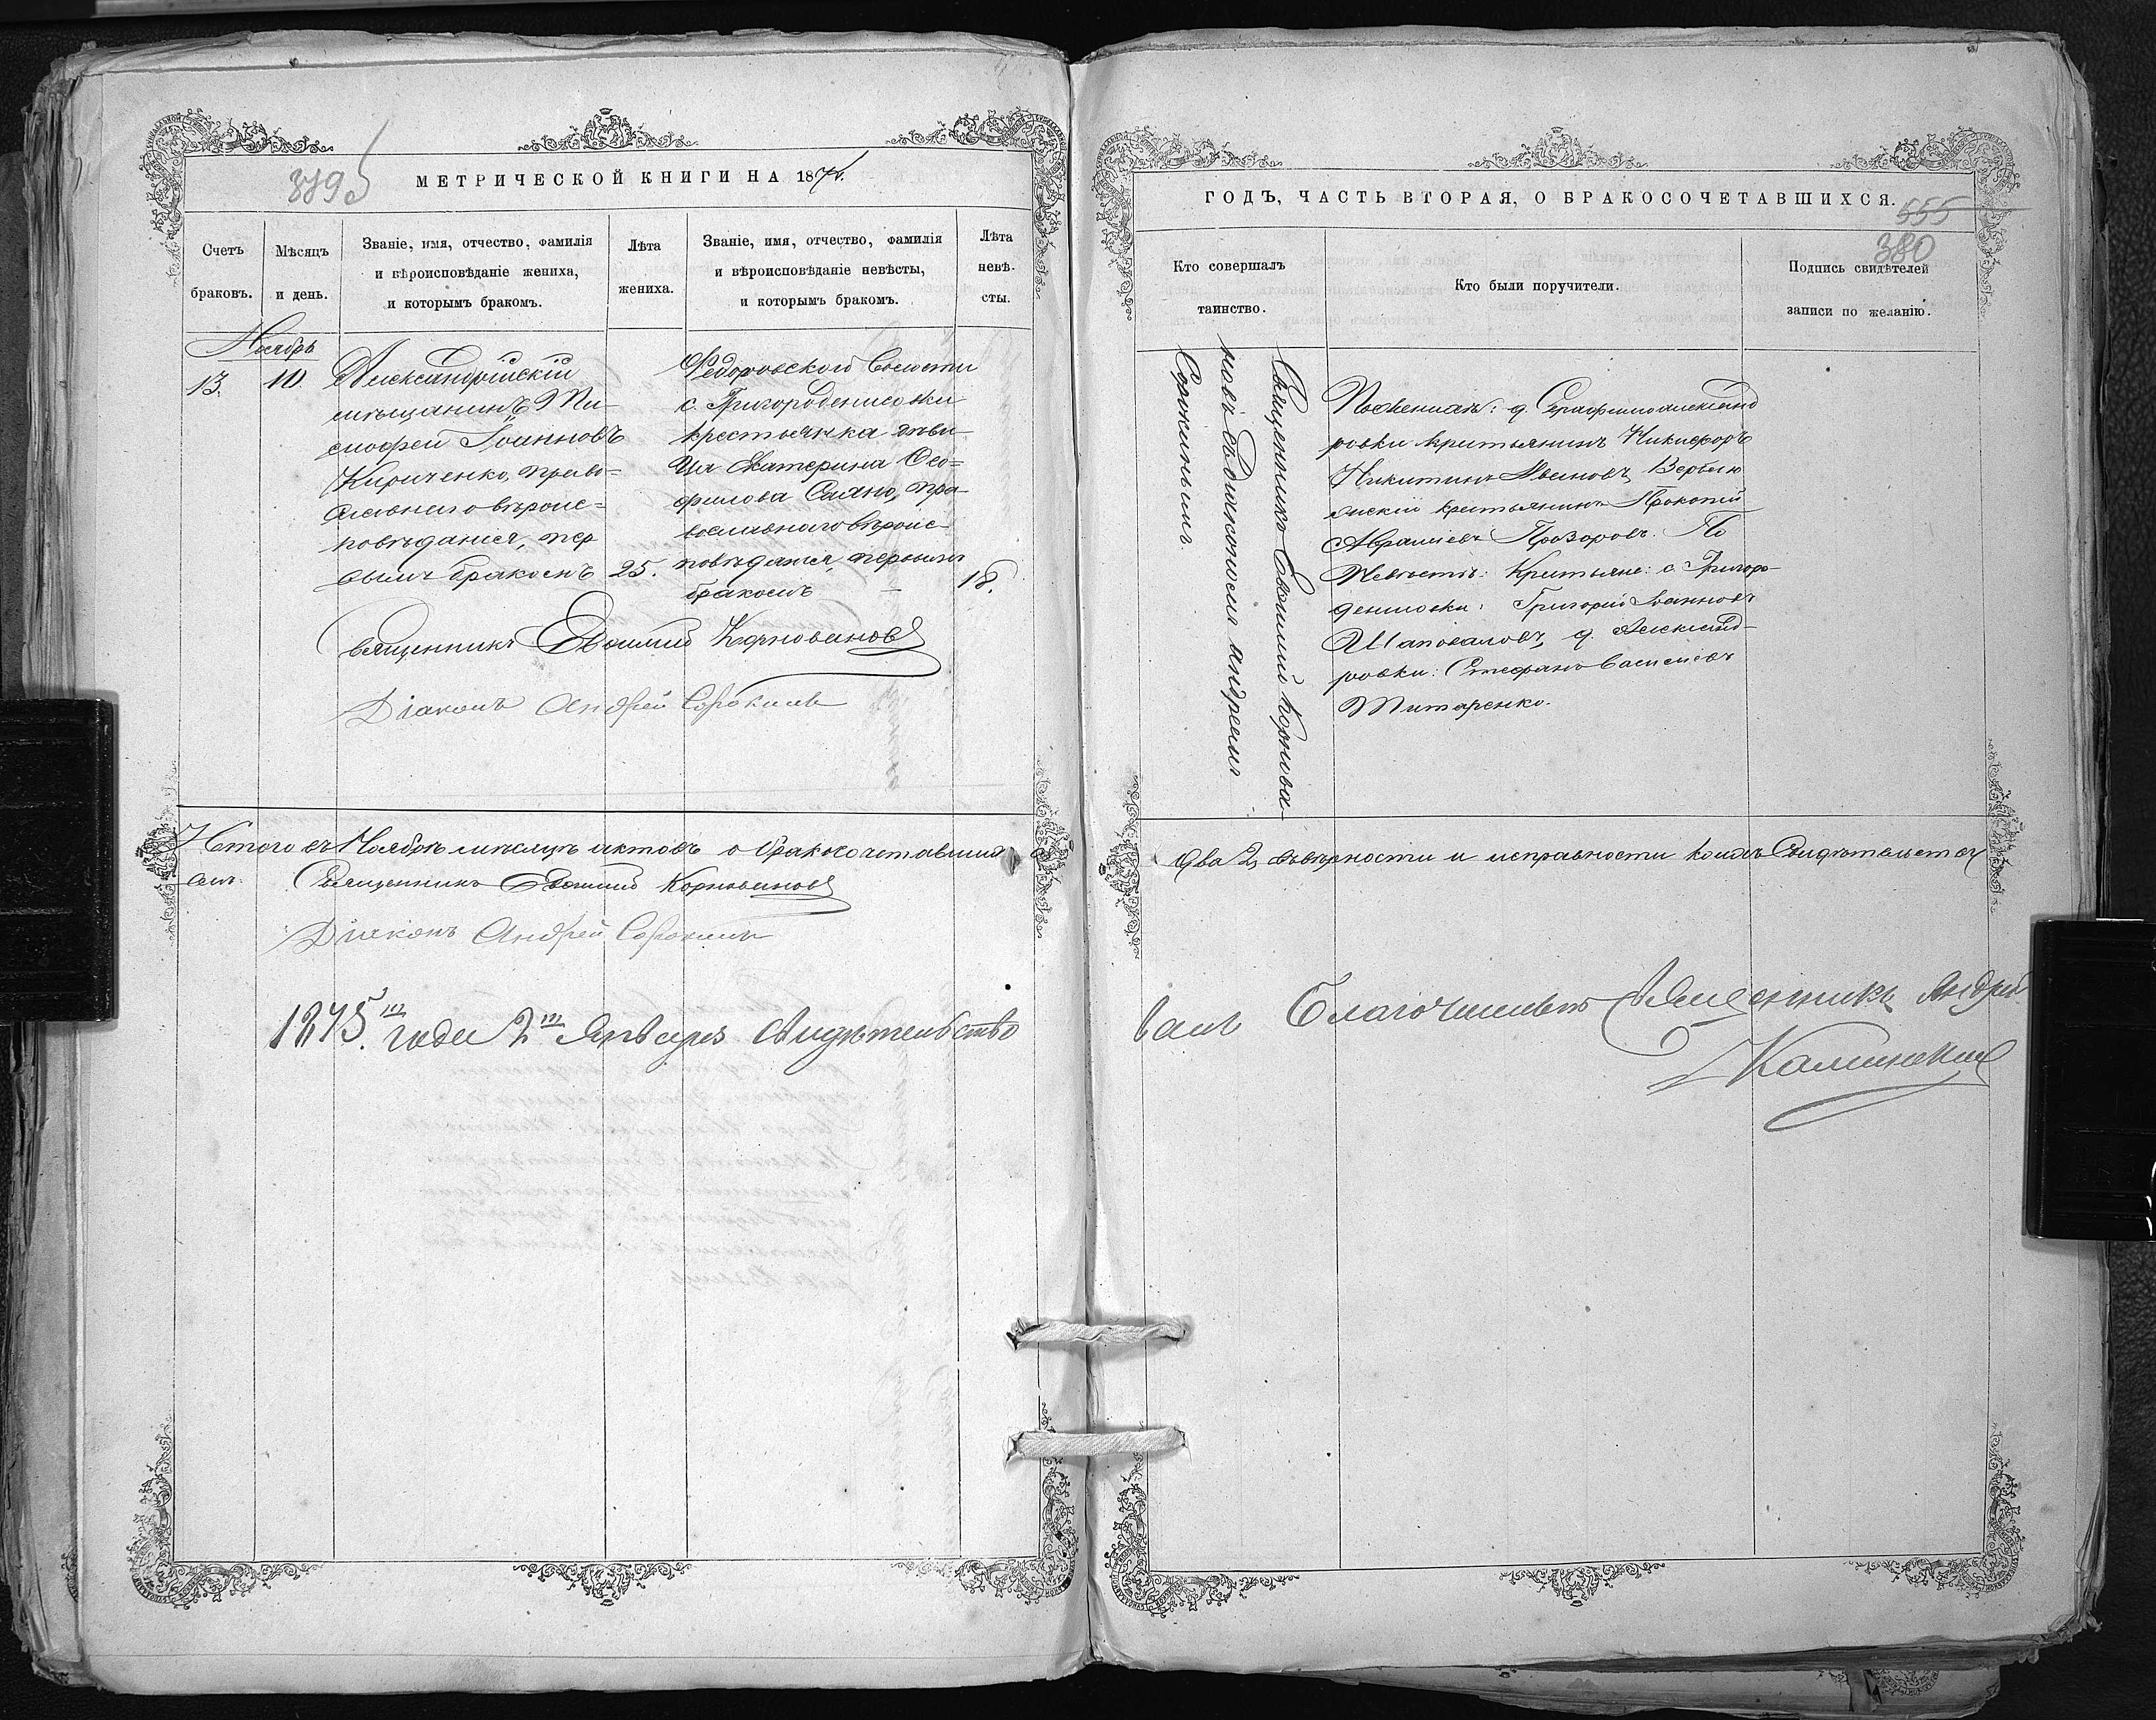 3895
МЕТРИЧЕСКОЙ КНИГИ НА 1874.
Счетъ браковъ.
Мѣсяцъ и день.
Званіе, имя, отчество, фамилія
и вѣроисповѣданіе жениха,
и которымъ бракомъ.
Лѣта жениха.
Званіе, имя, отчество, фамилія
и вѣроисповѣданіе невѣсты,
и которымъ бракомъ.
Лѣта невѣ-
сты.
Ноябрь
13.
10
Александрійскій
мѣщанинъ Ти-
моѳей Іоанновъ
Кириченко, право-
славнаго вѣроис-
повѣданія, пер
вымъ бракомъ
25.
Ѳедоровской волости
с. Григороденисовки
крестьянка дѣви-
ца Екатерина Ѳео-
филова, пра-
вославнаго вѣроис-
повѣданія, первымъ
бракомъ
18.
Священникъ Евѳимій Корнованов
Діаконъ Андрей Сорокинъ
Итого въ Ноябрѣ мѣсяцѣ актовъ о бракосочетавших
ся
Священникъ Евѳимій Корнованов
Діаконъ Андрей Сорокинъ
1875го года 2го Января свидѣтельство
ГОДЪ, ЧАСТЬ ВТОРАЯ, О БРАКОСОЧЕТАВШИХСЯ.
555
380
Кто совершалъ
таинство.
Кто были поручители.
Подпись свидѣтелей
записи по желанію.
Священникъ Евѳимій Корнова-
новъ съ Діакономъ Андреемъ
Сорокинымъ.
По женихѣ: д. Серафимоалександ
ровки крестьянинъ Никифоръ
Никитинъ Ивановъ,
крестьянинъ Прокопій
Авраміевъ Прозоровъ. По
невѣстѣ: Крестьяне: с. Григоро-
денисовки: Григорій Іоанновъ
Шаповаловъ, д. Александ-
ровки: Стефанъ Васильевъ
Титаренко.
Два 2, въ вѣрности и исправности коихъ Свидѣтельств
валъ Благочинный Священникъ Андрей
Калинскій